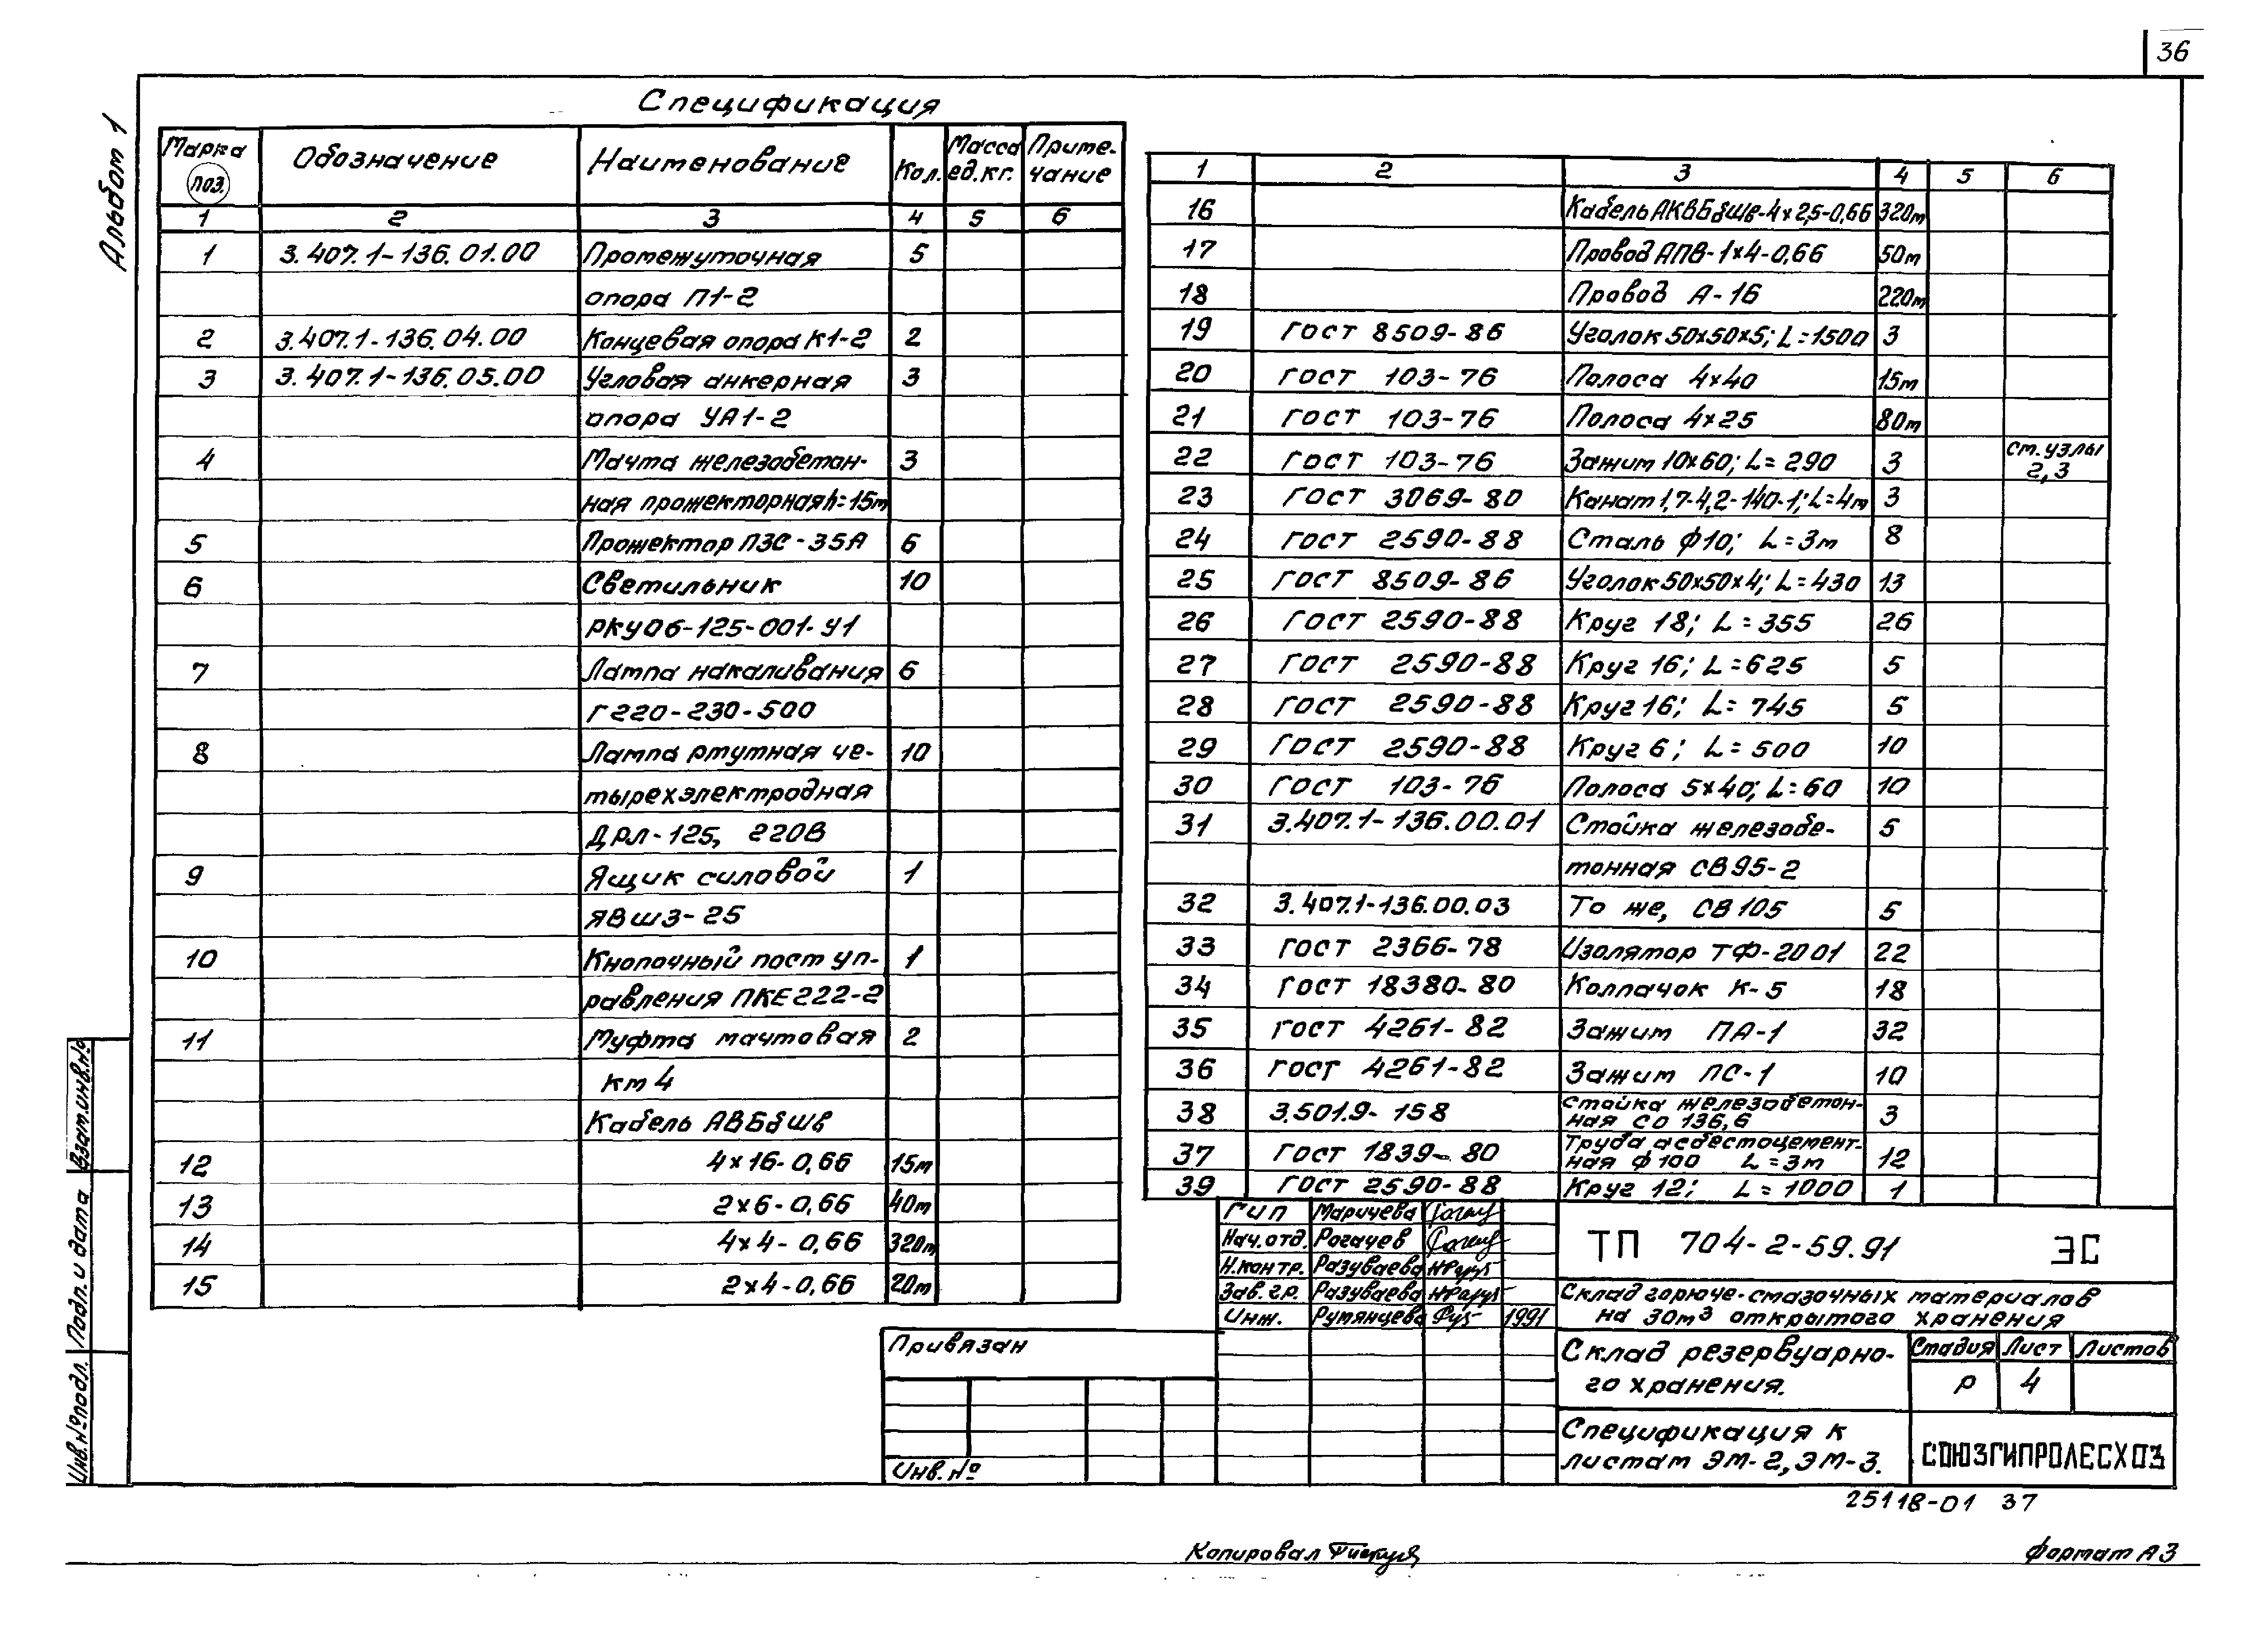 36
Альбом 1
Спецификация
Марка поз. Обозначение Наименование Кол. Масса ед.кг. Приме-чание
1 2 3 4 5 6
1 3.407.1-136.01.00 Промежуточная 5
опора П1-2
2 3.407.1-136.04.00 Концевая опора К1-2 2
3 3.407.1-136.05.00 Угловая анкерная 3
опора УА1-2
4 Мачта железобетон- 3
ная прожекторная h=15м
5 Прожектор ПЗС-35А 6
6 Светильник 10
РКУ06-125-001-У1
7 Лампа накаливания 6
Г220-230-500
8 Лампа ртутная че- 10
тырехэлектродная
ДРЛ-125, 220В
9 Ящик силовой 1
ЯВШ3-25
10 Кнопочный пост уп- 1
равления ПКЕ222-2
11 Муфта мачтовая 2
км 4
Кабель АВБбШв
12 4×16-0,66 15м
13 2×6-0,66 40м
14 4×4-0,66 320м
15 2×4-0,66 20м
1 2 3 4 5 6
16 Кабель АКВБбШв-4×2,5-0,66 320м
17 Провод АПВ-1×4-0,66 50м
18 Провод А-16 220м
19 ГОСТ 8509-86 Уголок 50×50×5; L=1500 3
20 ГОСТ 103-76 Полоса 4×40 15м
21 ГОСТ 103-76 Полоса 4×25 80м
22 ГОСТ 103-76 Зажим 10×60; L=290 3 см. узлы 2,3
23 ГОСТ 3069-80 Канат 1,7-4,2-140-1; L=4м 3
24 ГОСТ 2590-88 Сталь ф10; L=3м 8
25 ГОСТ 8509-86 Уголок 50×50×4; L=430 13
26 ГОСТ 2590-88 Круг 18; L=355 26
27 ГОСТ 2590-88 Круг 16; L=625 5
28 ГОСТ 2590-88 Круг 16; L=745 5
29 ГОСТ 2590-88 Круг 6; L=500 10
30 ГОСТ 103-76 Полоса 5×40; L=60 10
31 3.407.1-136.00.01 Стойка железобе- 5
тонная СВ95-2
32 3.407.1-136.00.03 То же, СВ105 5
33 ГОСТ 2366-78 Изолятор ТФ-2001 22
34 ГОСТ 18380-80 Колпачок К-5 18
35 ГОСТ 4261-82 Зажим ПА-1 32
36 ГОСТ 4261-82 Зажим ПС-1 10
38 3.501.9-158 Стойка железобетон-ная СО 136,6 3
37 ГОСТ 1839-80 Труба асбестоцемент-ная ф100 L=3м 12
39 ГОСТ 2590-88 Круг 12; L=1000 1
ГИП Маричева
Нач.отд. Рогачев
Н.контр. Разуваева
Зав.гр. Разуваева
Инж. Румянцева 1991
ТП 704-2-59.91 ЭС
Склад горюче-смазочных материалов
на 30м³ открытого хранения
Склад резервуарно-
го хранения.
Стадия Лист Листов
Р 4
Спецификация к
листам ЭМ-2, ЭМ-3.
СОЮЗГИПРОЛЕСХОЗ
Привязан
Инв. №
Взам.инв.№
Подп. и дата
Инв.№подл.
25118-01 37
Копировал
Формат А3